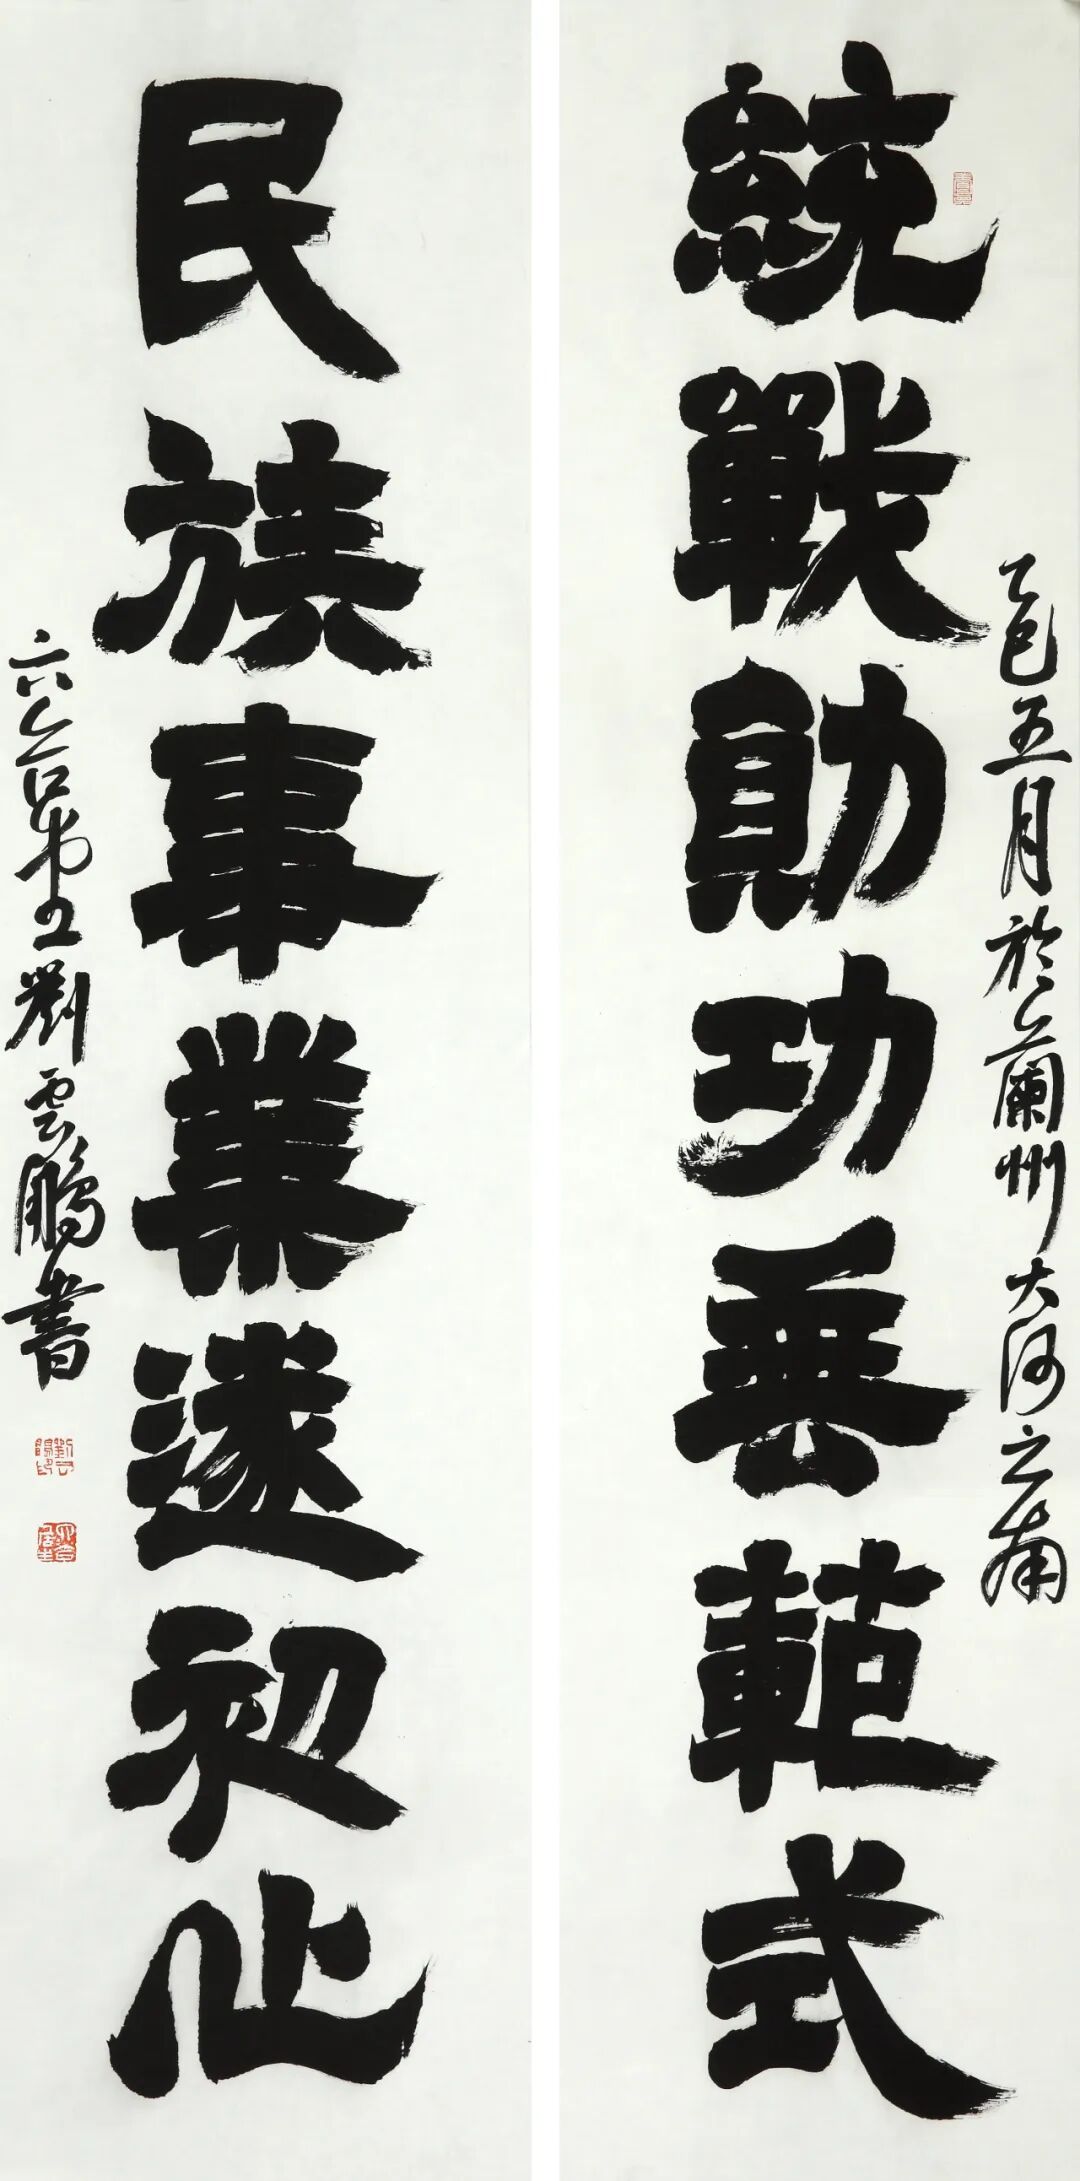 統戰勛功垂範式
乙巳五月於蘭州大河之南
民族事業遂初心
六 劉雲鵬書